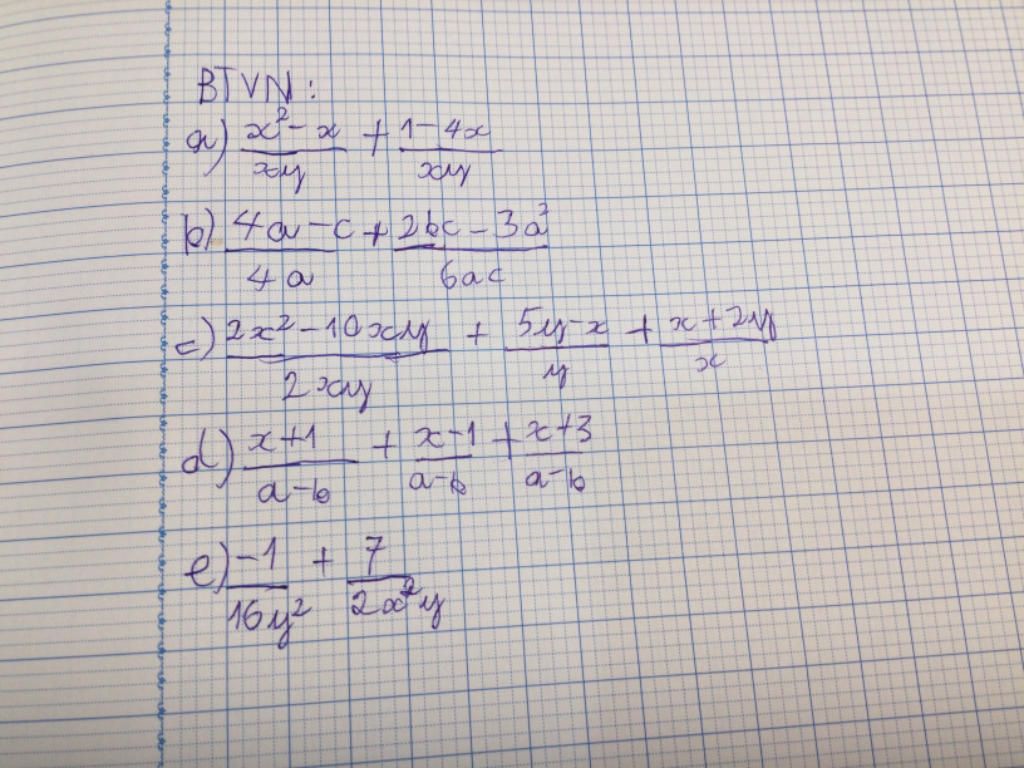 BTVN:
a) (x² - x)/(xy) + (1 - 4x)/(xy)
b) (4a - c)/(4a) + (2bc - 3a²)/(6ac)
c) (2x² - 10xy)/(2xy) + (5y - x)/y + (x + 2y)/x
d) (x + 1)/(a - b) + (x - 1)/(a - b) + (x + 3)/(a - b)
e) -1/(16y²) + 7/(2x²y)